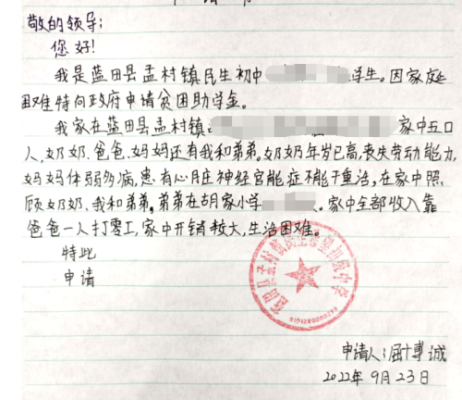 敬的领导:
您好!
我是蓝田县孟村镇民生初中 学生。因家庭
困难特向政府申请贫困助学金。
我家在蓝田县孟村镇 家中五口
人,奶奶、爸爸、妈妈还有我和弟弟。奶奶年岁已高,丧失劳动能力,
妈妈体弱多病,患有心脏神经官能症不能干重活,在家中照
顾奶奶、我和弟弟。弟弟在胡家小学 家中全部收入靠
爸爸一人打零工,家中开销较大,生活困难。
特此
申请
申请人:屈博诚
2022年9月23日